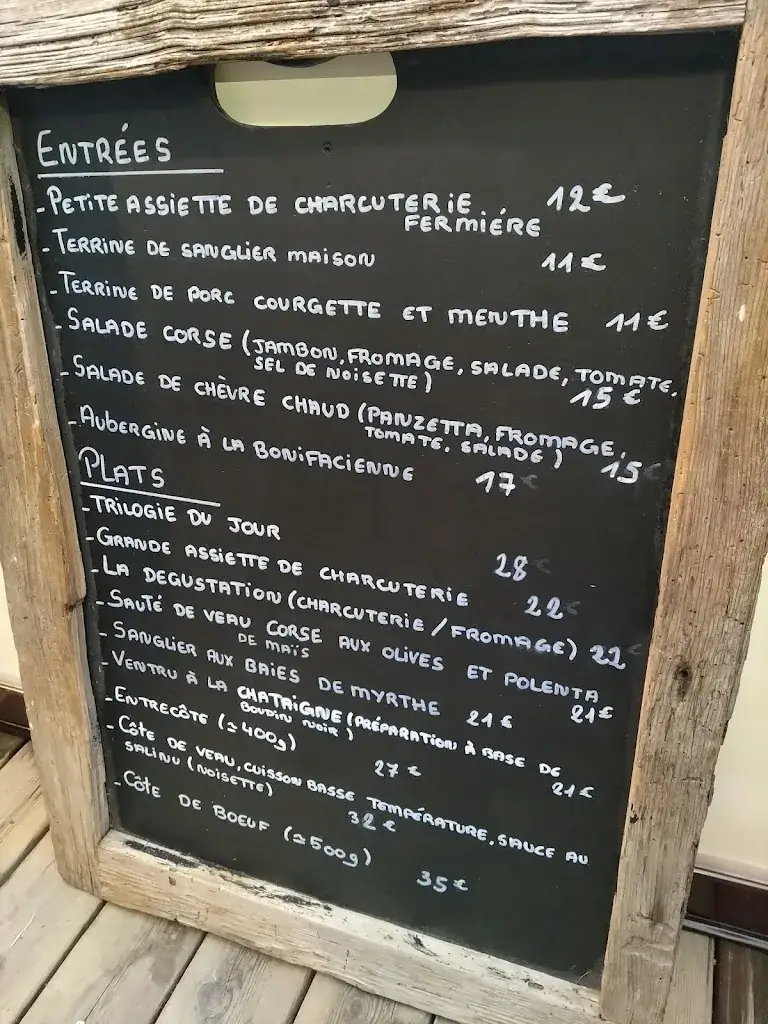 ENTRÉES
- PETITE ASSIETTE DE CHARCUTERIE 12€
FERMIÉRE
- TERRINE DE SANGLIER MAISON 11€
- TERRINE DE PORC COURGETTE ET MENTHE 11€
- SALADE CORSE (JAMBON, FROMAGE, SALADE, TOMATE,
SEL DE NOISETTE) 15€
- SALADE DE CHÈVRE CHAUD (PANZETTA, FROMAGE,
TOMATE, SALADE) 15€
- AUBERGINE À LA BONIFACIENNE 17€
PLATS
- TRILOGIE DU JOUR 28€
- GRANDE ASSIETTE DE CHARCUTERIE 22€
- LA DEGUSTATION (CHARCUTERIE / FROMAGE) 22€
- SAUTÉ DE VEAU CORSE AUX OLIVES ET POLENTA
DE MAÏS 21€
- SANGLIER AUX BAIES DE MYRTHE 21€
- VENTRU À LA CHATAIGNE (PRÉPARATION À BASE DE
BOUDIN NOIR) 21€
- ENTRECÔTE (≃400g) 27€
- CÔTE DE VEAU, CUISSON BASSE TEMPÉRATURE, SAUCE AU
SALINU (NOISETTE) 32€
- CÔTE DE BOEUF (≃500g) 35€